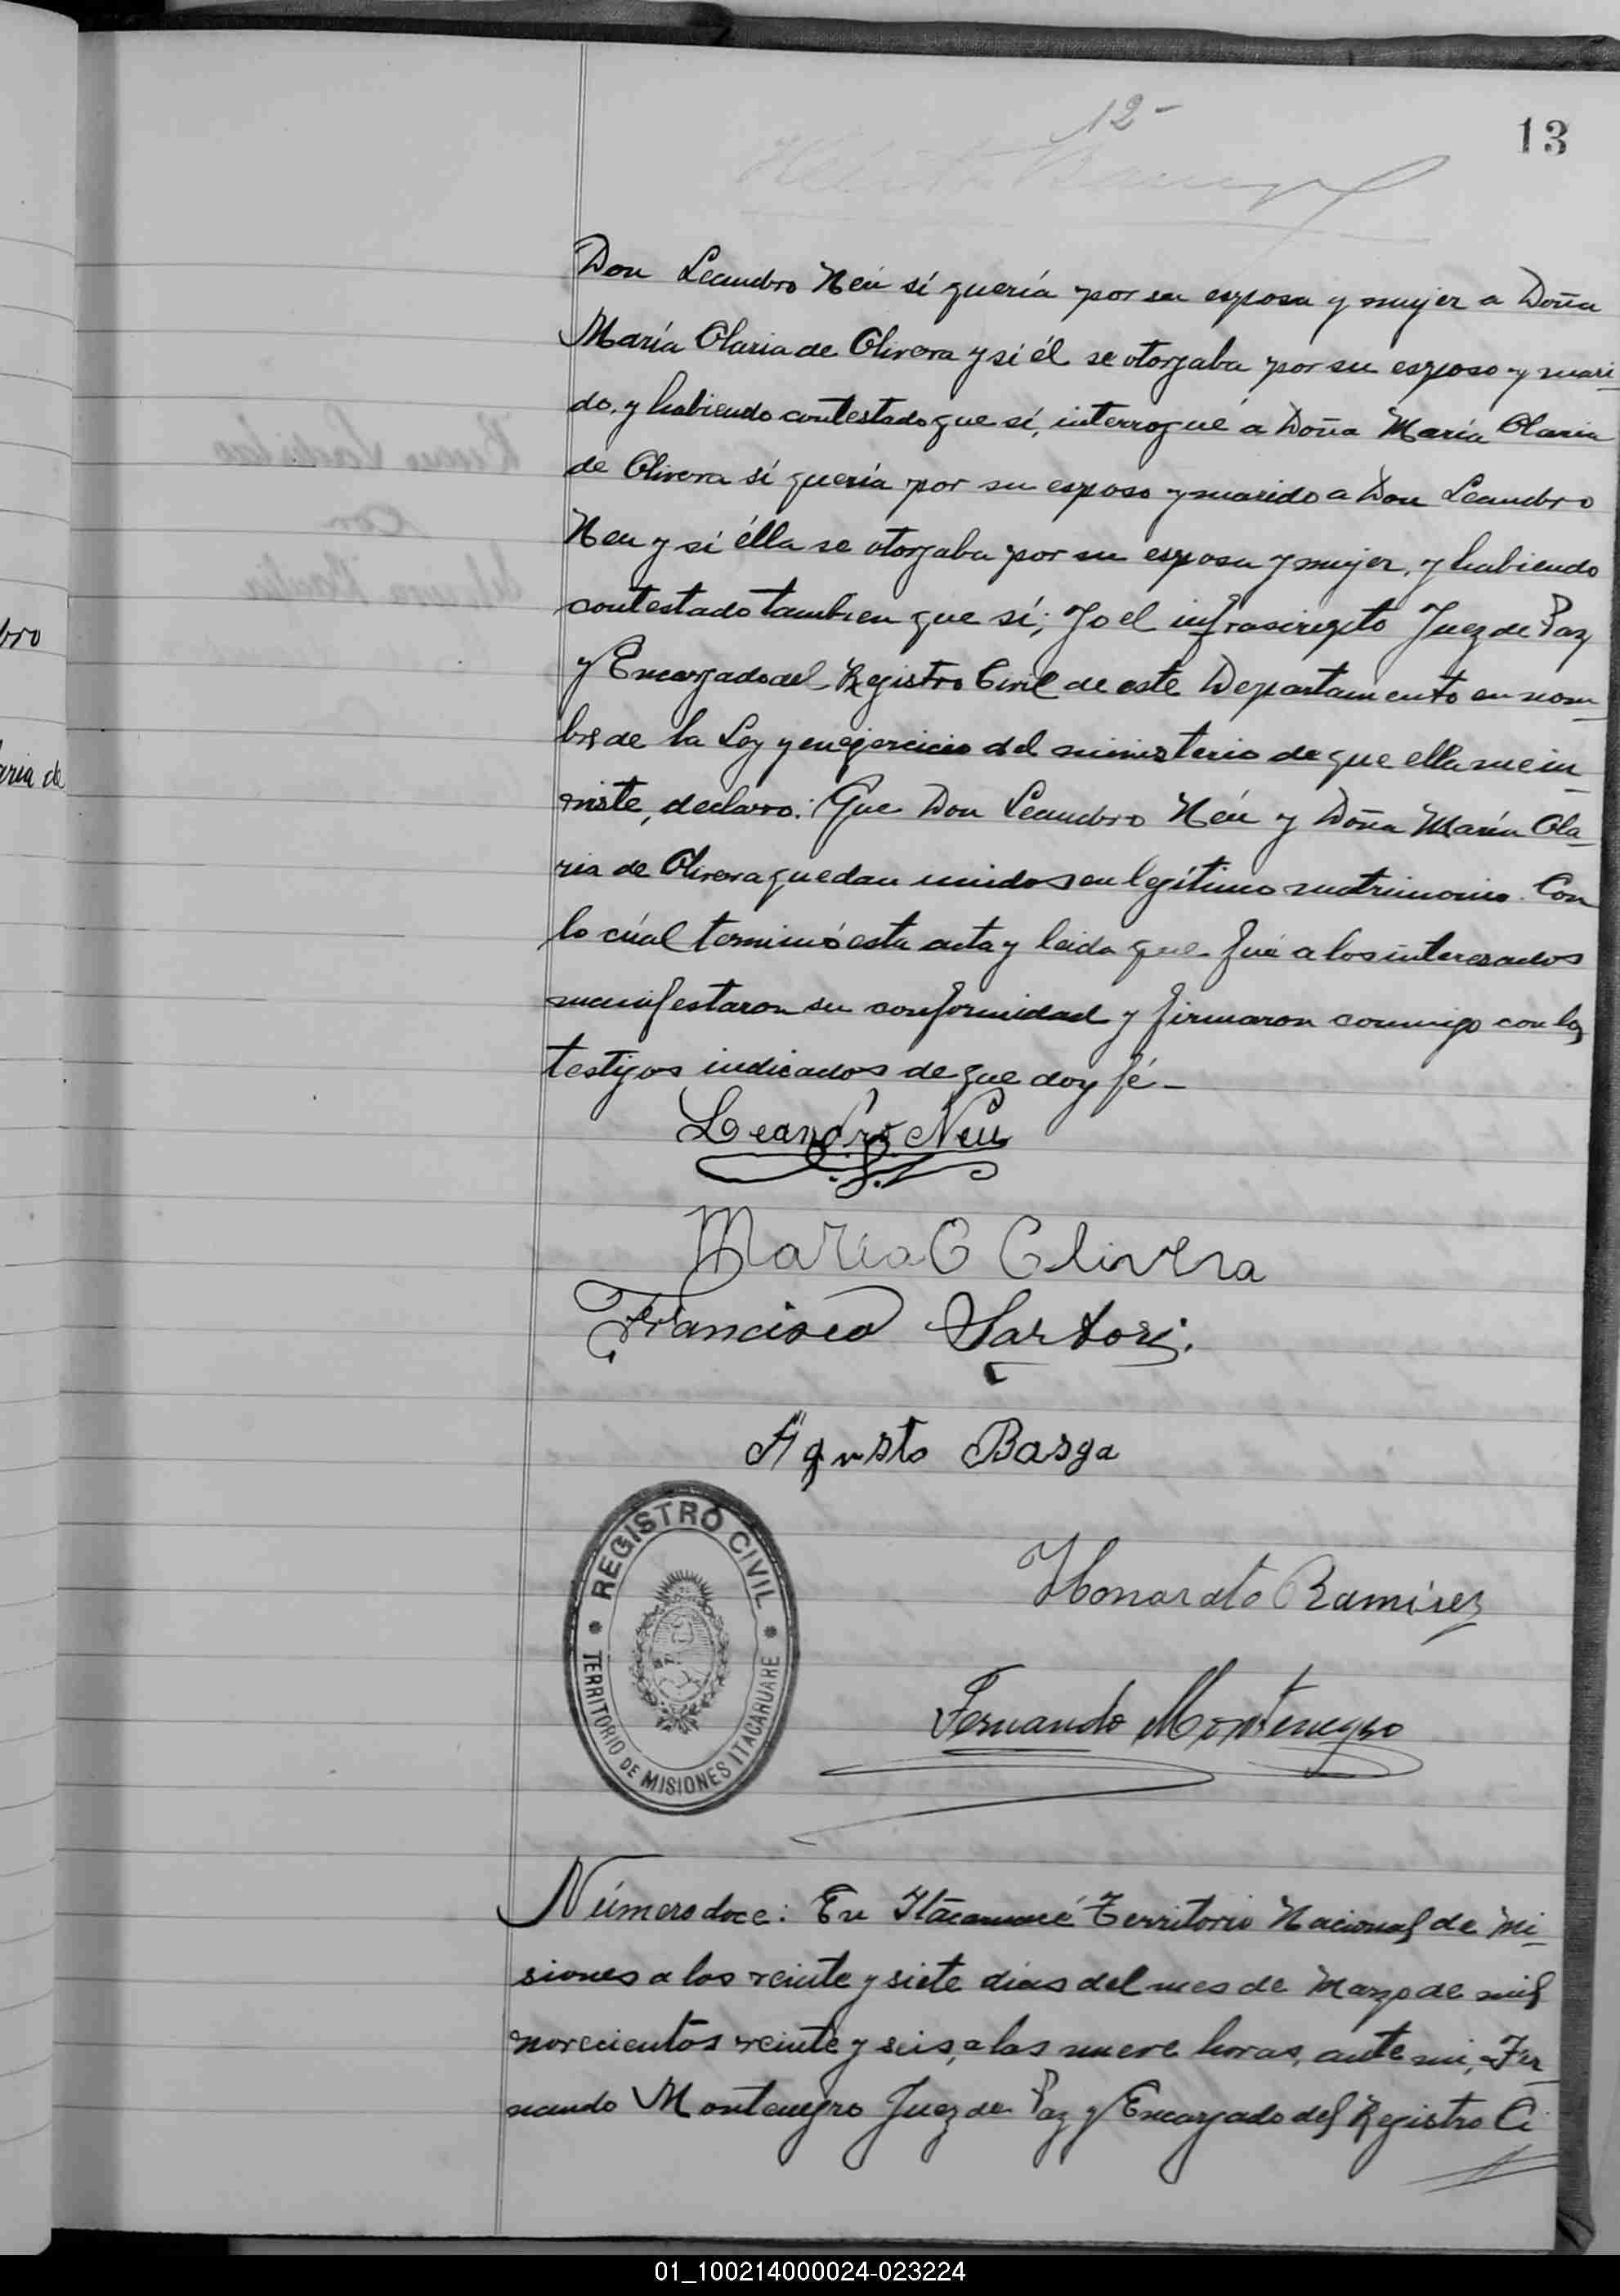 12-
13
Don Leandro Neu sí quería por su esposa y mujer a Doña
María Olaria de Olivera y si él se otorgaba por su esposo y mari-
do, y habiendo contestado que sí, interrogué a Doña María Olaria
de Olivera si quería por su esposo y marido a Don Leandro
Neu y si élla se otorgaba por su esposa y mujer, y habiendo
contestado tambien que sí; Yo el infrascripto Juez de Paz
y Encargado del Registro Civil de este Departamento en nom-
bre de la Ley y en ejercicio del ministerio de que ella me in-
viste, declaro: Que Don Leandro Néu y Doña María Ola-
ria de Olivera quedan unidos en legítimo matrimonio. Con
lo cúal terminó esta acta y leida que fué a los interesados
manifestaron su conformidad y firmaron conmigo con los
testigos indicados de que doy fé-
Leandro Neu
Maria O Olivera
Francisco Sartori.
Agusto Basga
REGISTRO CIVIL
TERRITORIO DE MISIONES ITACARUARE
Honorato Ramirez
Fernando Montenegro
Número doce: En Itacaruaré Territorio Nacional de Mi-
siones a los veinte y siete dias del mes de Marzo de mil
novecientos veinte y seis, a las nueve horas, ante mi, Fer-
nando Montenegro Juez de Paz y Encargado del Registro Ci
bro
aria de
01_100214000024-023224